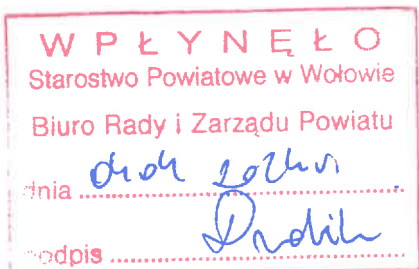 WPŁYNĘŁO
Starostwo Powiatowe w Wołowie
Biuro Rady i Zarządu Powiatu
dnia
podpis